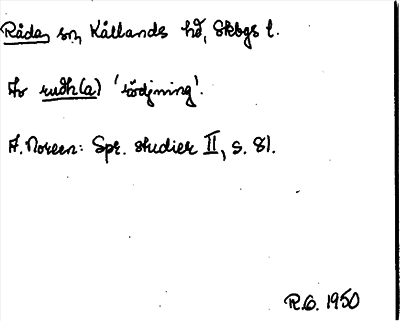 Råda, sn, Kållands hd, Skbgs l.
Av rudh(a) 'rödjning'.
A. Noreen: Spr. studier II, s. 81.
R.G. 1950